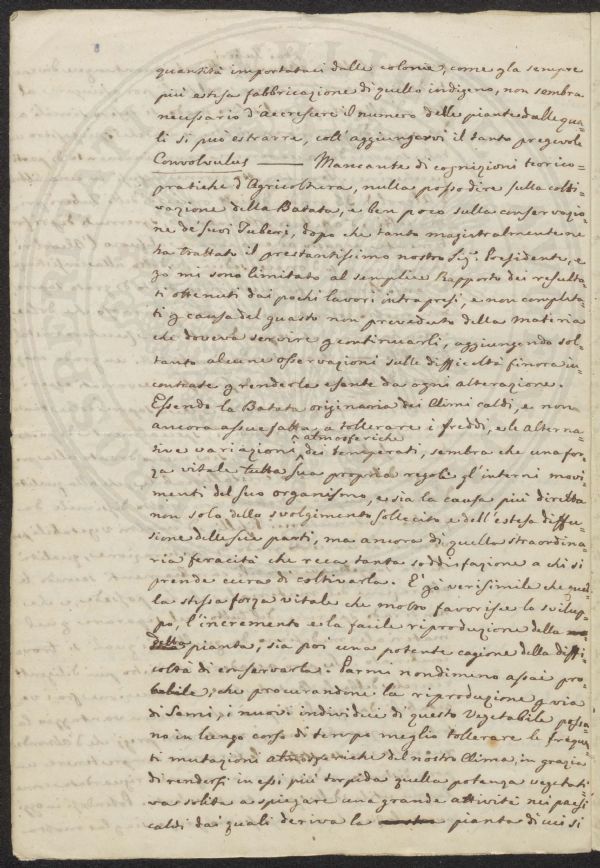 quantità importataci dalle colonie, come p la sempre
più estesa fabbricazione di quello indigeno, non sembra
necessario d'accrescere il numero delle piante dalle qua=
li si può estrarre, coll'aggiungervi il tanto pregevole
Convolvulus ——— Mancante di cognizioni teorico=
pratiche d'Agricoltura, nulla posso dire sulla colti=
vazione della Batata, e ben poco sulla conservazio=
ne de' suoi Tuberi, dopo che tanto magistralmente ne
ha trattato il prestantissimo nostro Sig.r Presidente, e
pò mi sono limitato al semplice Rapporto dei risulta=
ti ottenuti dai pochi lavori intrapresi, e non completa=
ti p causa del guasto non preveduto della materia
che doveva servire p continuarli, aggiungendo sol=
tanto alcune osservazioni sulle difficoltà finora in=
contrate p renderla esente da ogni alterazione.
Essendo la Batata originaria dei Climi caldi, e non
ancora assuefatta a tollerare i freddi, e le alterna=
tive variazioni atmosferiche dei temperati, sembra che una for=
za vitale tutta sua propria regoli gl'interni movi=
menti del suo organismo, e sia la causa più diretta
non solo dello svolgimento sollecito e dell'estesa diffu=
sione delle sue parti, ma ancora di quella straordina=
ria feracità che reca tanta soddisfazione a chi si
prende cura di coltivarla. È pò verisimile che quel=
la stessa forza vitale che molto favorisce lo svilup=
po, l'incremento e la facile riproduzione della
detta pianta, sia poi una potente cagione della diffi=
coltà di conservarla. Parmi nondimeno assai pro=
babile, che procurandone la riproduzione p via
di Semi, i nuovi individui di questo Vegetabile possa=
no in lungo corso di tempo meglio tollerare le frequen=
ti mutazioni atmosferiche del nostro Clima, in grazia
di rendersi in essi più torpida quella potenza vegetati=
va solita a spiegare una grande attività nei paesi
caldi dai quali deriva la pianta di cui si